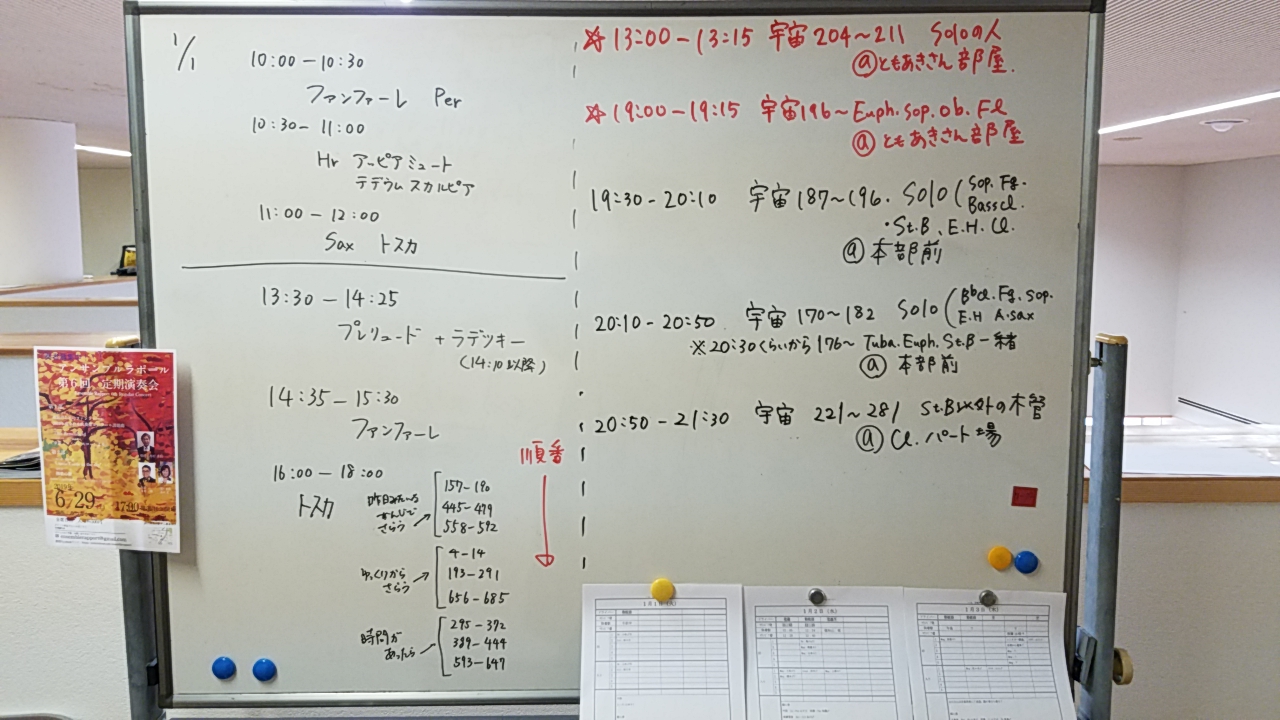 1/1
10:00-10:30
ファンファーレ Per
10:30-11:00
Hr アーピアミュート
テデウム スカルピア
11:00-12:00
Sax トスカ
13:30-14:25
プレリュード + ラデツキー
(14:10以降)
14:35-15:30
ファンファーレ
16:00-18:00
トスカ
さらう
157-190
445-479
558-592
ゆっくりから
さらう
4-14
193-291
656-685
時間が
あったら
295-372
389-444
593-647
順番
☆13:00-13:15 宇宙204~211 Soloの人
@ともあきさん部屋.
☆19:00-19:15 宇宙196~Euph.Sop.Ob.Fl
@ともあきさん部屋
19:30-20:10 宇宙187~196. Solo(Sop.Fg.
Basscl.
・St.B、E.H.Cl.
@本部前
20:10-20:50 宇宙170~182 Solo(B♭cl.Fg.Sop.
E.H A.sax
※20:30くらいから176~ Tuba.Euph.St.B一緒
@本部前
20:50-21:30 宇宙 221~281 St.B以外の木管
@Cl.パート場
アンサンブルラボール
第6回 定期演奏会
6/29
1月1日(火)
1月2日(水)
1月3日(木)